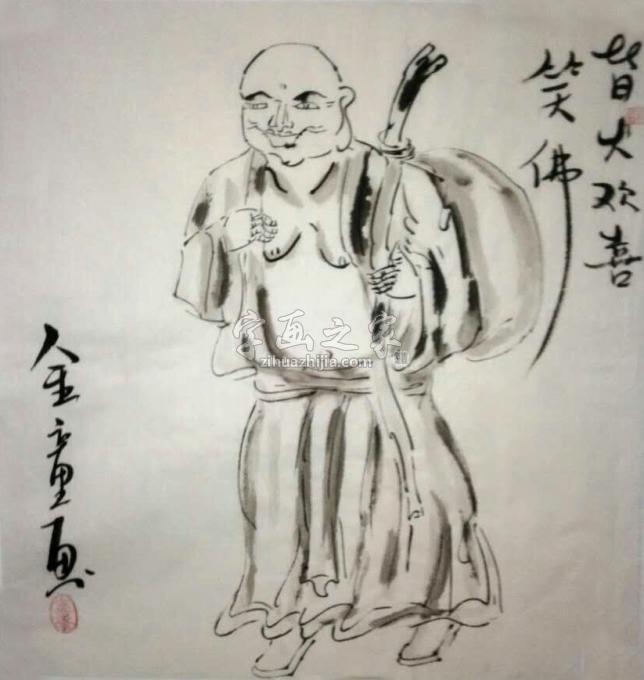 皆大欢喜
笑佛
字画之家
zihuazhijia.com
金童画